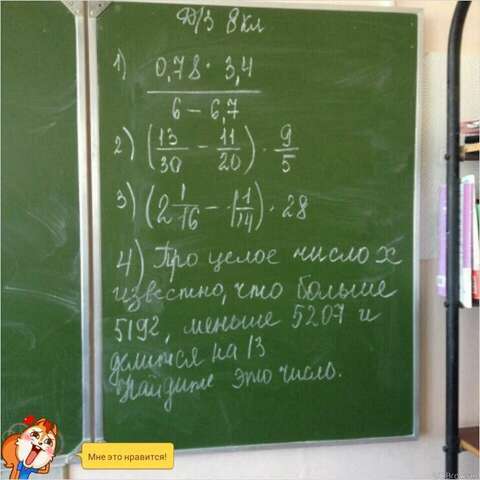 Д/З 8 кл
1) 0,78 · 3,4
6 – 6,7
2) (13/30 – 11/20) · 9/5
3) (2 1/16 – 1 1/14) · 28
4) Про целое число х
известно, что больше
5192, меньше 5207 и
делится на 13
Найдите это число.
Мне это нравится!